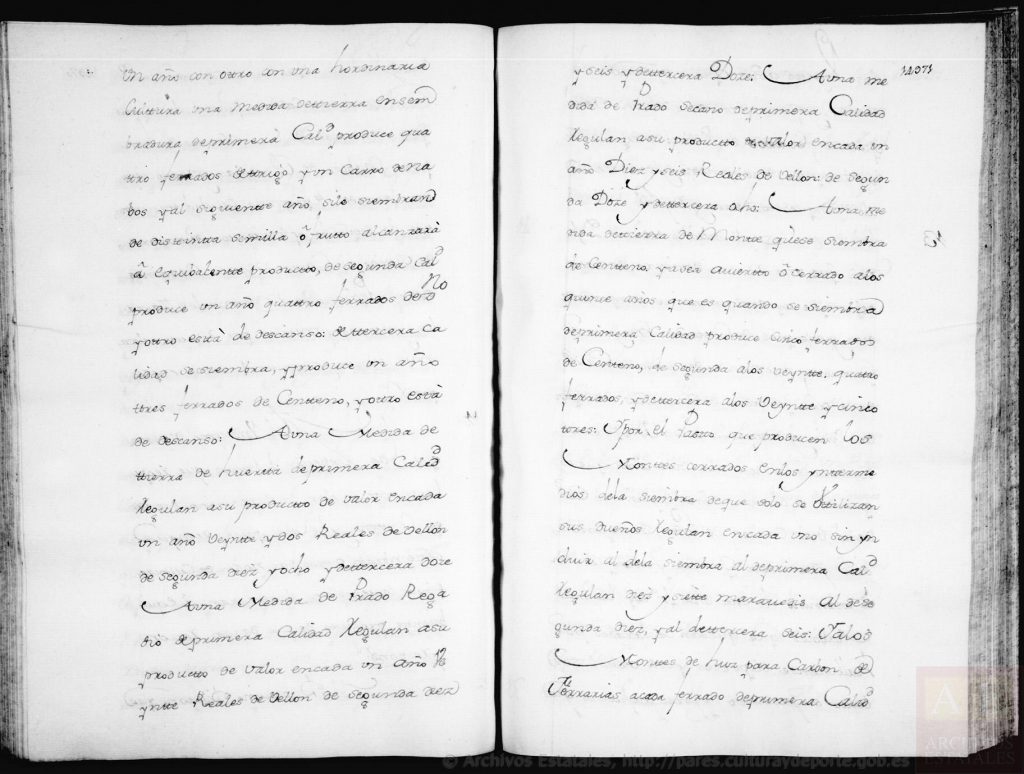 Un año con ottro con una hordinaria
Cultura una Medida dettierra ensem
bradura, deprimera Calᵈ produce qua
ttro ferrados dettrigo, y un Carro de Na
bos y al siguientte año, silo siembran
de disttintta semilla ô frutto alcanzarà
â equibalentte productto, de segunda Calᵈ
produce un año quattro ferrados dedᵒ
No
y otro està de descanso: dettercera Ca
lidad se siembra, y produce un año
ttres ferrados de Centteno, y otro està
de descanso: Auna Medida de
ttierra de huertta deprimera Calidᵈ
Regulan asu productto de valor encada
un año Veyntte y dos Reales de Vellon
de segunda diez y ocho y dettercera doze
Auna Medida de Prado Rega
dio deprimera Calidad Regulan asu
productto de valor encada un año Vê
yntte Reales de Vellon de segunda diez
14071
y seis y dettercera Doze: Auna me
dida de Prado secano deprimera Calidad
Regulan asu productto de valor encada un
año Diez y seis Reales de Vellon: de segun
da Doze y dettercera ocho: Auna me
dida dettierra de Montte quese siembra
de Centteno, yasea avierto ô cerrado alos
quinze años que es quando se siembra
deprimera Calidad produce Cinco ferrados
de Centeno, de segunda alos Veyntte, quattro
ferrados, y dettercera alos Veyntte y cinco
ttres: Y por el Pastto que producen los
Monttes cerrados enlos ynterme
dios dela siembra deque solo se Uttilizan
sus dueños Regulan encada uno sin yn
cluir al dela siembra al deprimera Calᵈ
Regulan diez y siette maravedis Al dese
gunda diez, y al dettercera seis: Yalos
Monttes de huz para Carbon de
Ferrarias acada ferrado deprimera Calidᵈ
© Archivos Estatales, http://pares.culturaydeporte.gob.es
ARCHIVOS
ESTATALES